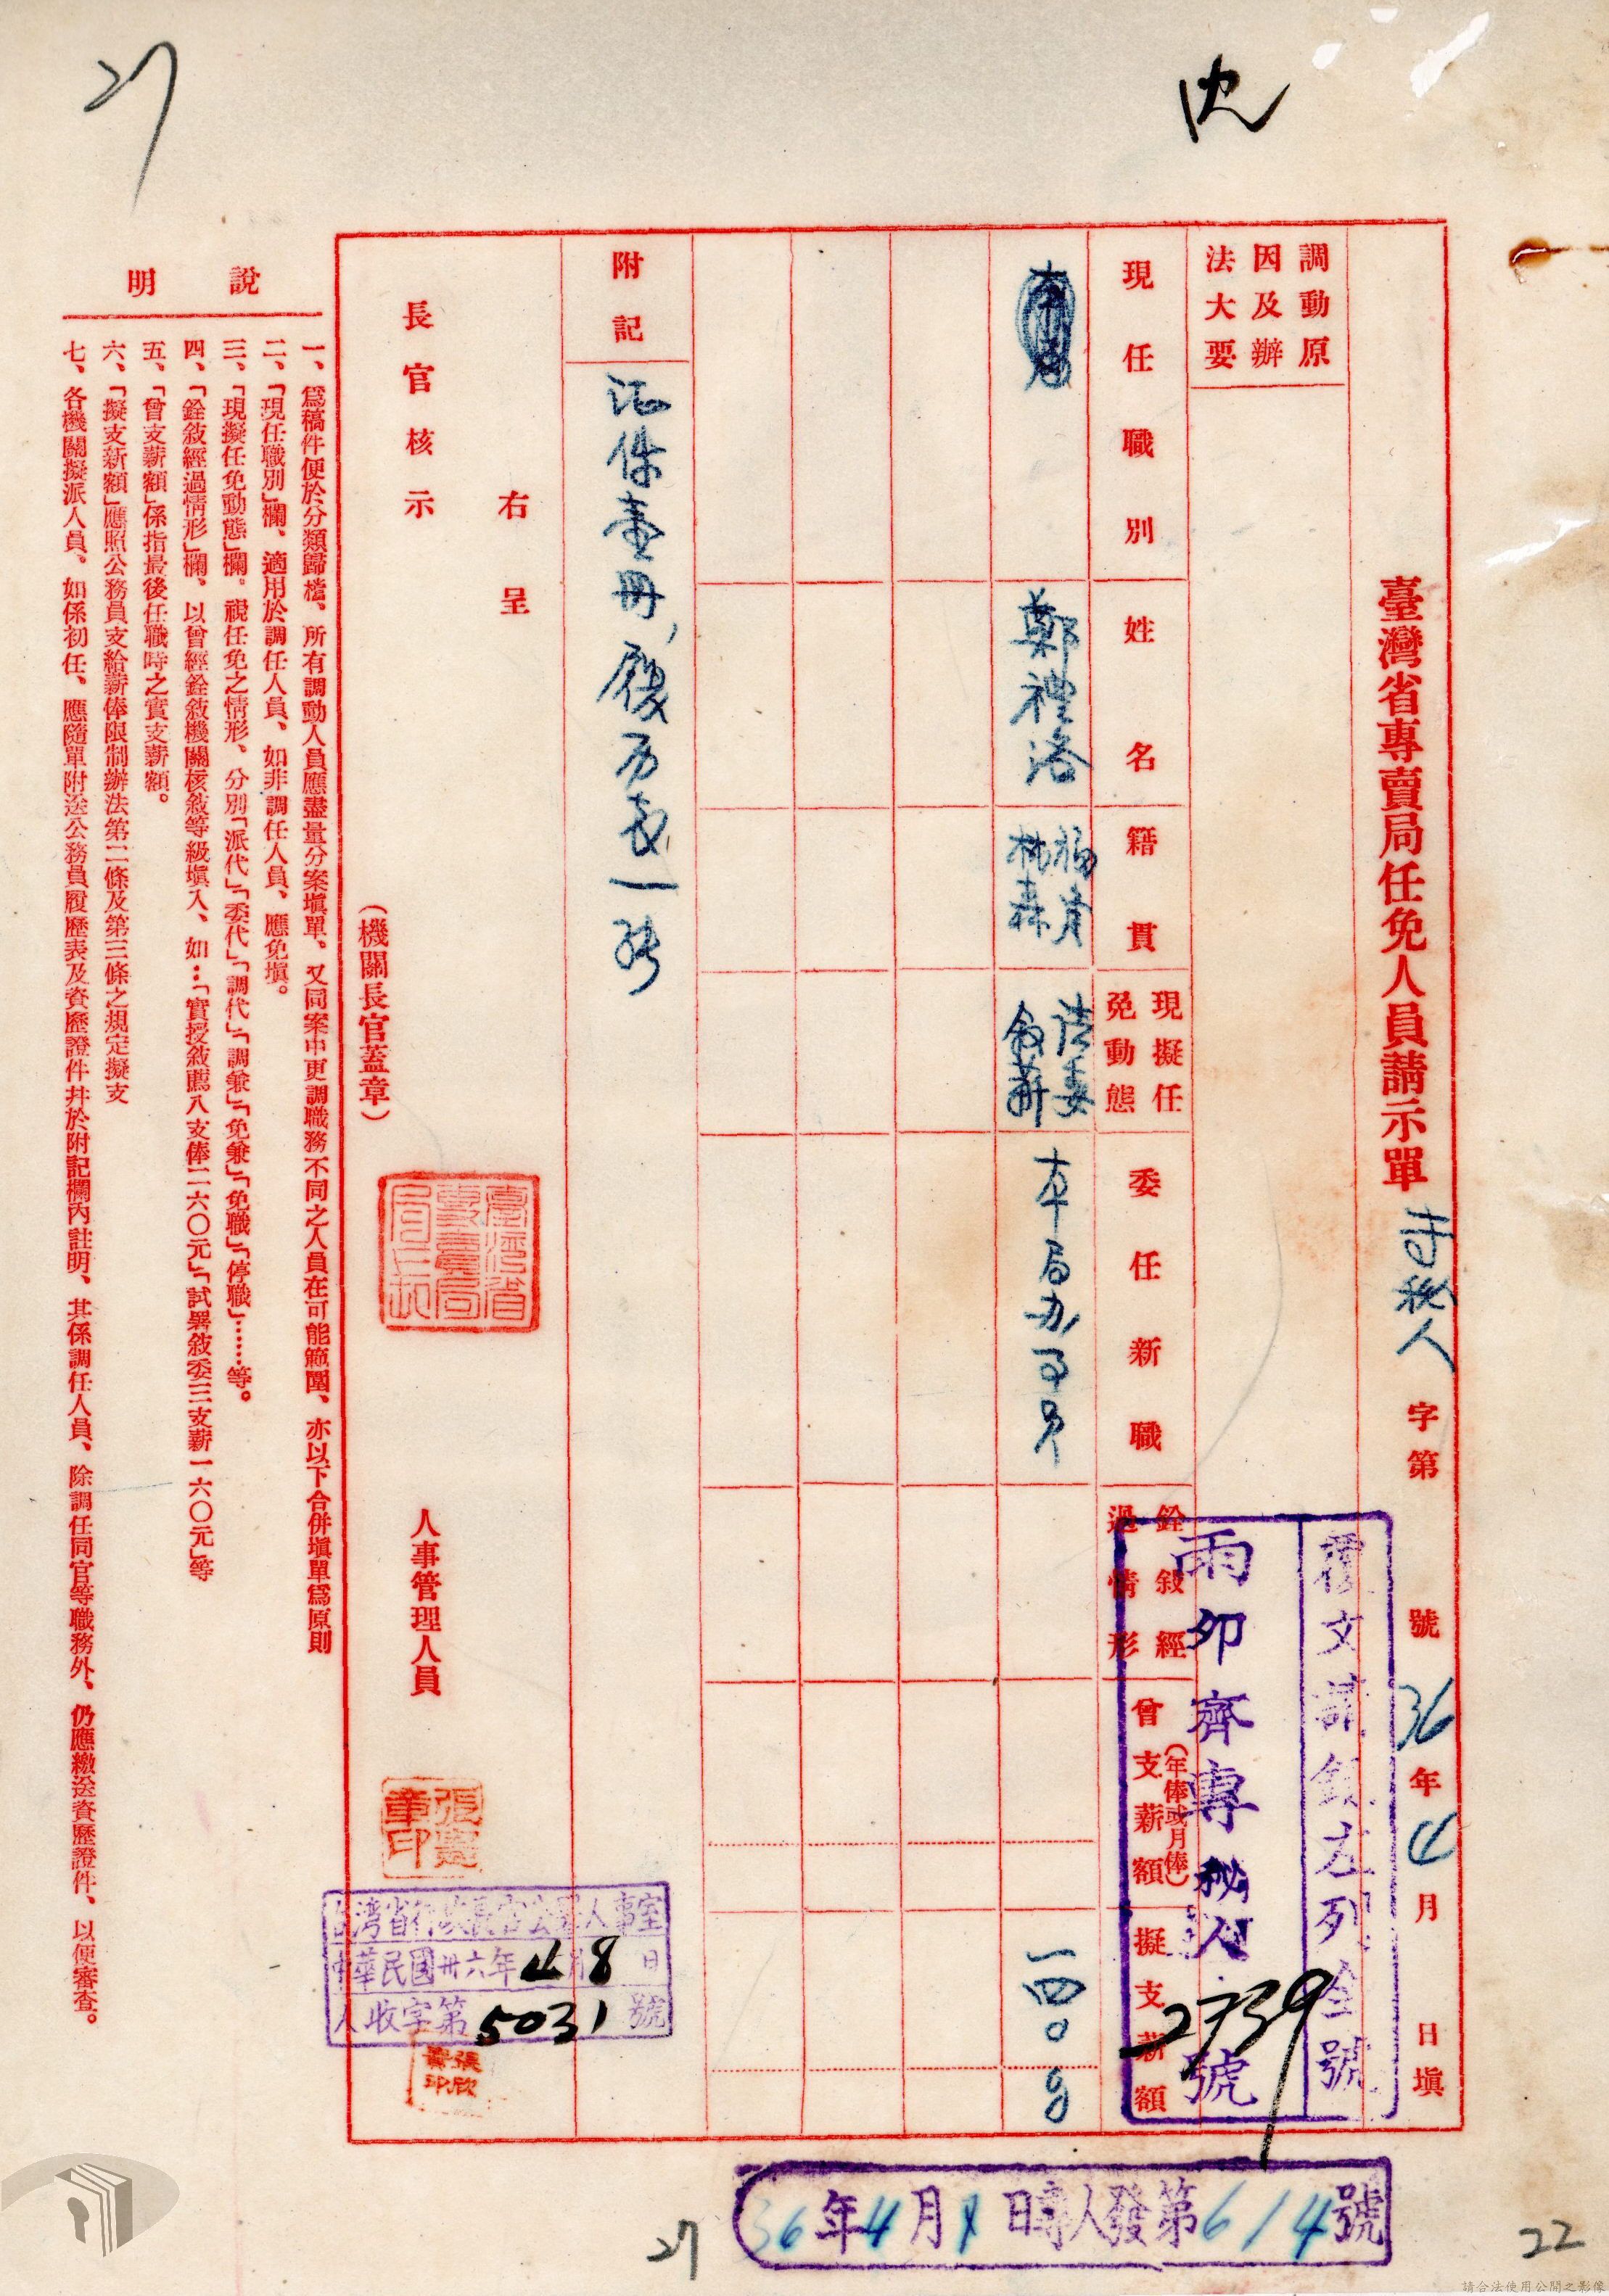 沈
27
臺灣省專賣局任免人員請示單 寺秘人 字第 號 36年4月 日填
覆文請錄左列全號
雨卯齊專秘人 2739 號
調動原
因及辦
法大要
現任職別
姓名
籍貫
現擬任
免動態
委任新職
銓敍經
過情形
曾支薪額
(年俸或月俸)
擬支薪額
鄭禮洛
福建
林森
請委
敘薪
本局办事員
一四〇
附記
証件壹冊，履历表一張
右呈
長官核示
(機關長官蓋章)
臺灣省
專賣局
人事管理人員
張憲
章印
台灣省行政長官公署人事室
中華民國卅六年4月8日
人收字第5031號
張欣
說明
一、爲稿件便於分類歸檔、所有調動人員應盡量分案塡單。又同案中更調職務不同之人員在可能範圍、亦以下合併塡單爲原則
二、「現任職別」欄、適用於調任人員、如非調任人員、應免塡。
三、「現擬任免動態」欄。視任免之情形、分別「派代」「委代」「調代」「調兼」「免兼」「免職」「停職」……等。
四、「銓敍經過情形」欄、以曾經銓敍機關核敍等級塡入、如…「實授敍薦八支俸二六〇元」「試署敍委三支薪一六〇元」等
五、「曾支薪額」係指最後任職時之實支薪額。
六、「擬支新額」應照公務員支給薪俸限制辦法第二條及第三條之規定擬支
七、各機關擬派人員、如係初任、應隨單附送公務員履歷表及資歷證件幷於附記欄內註明、其係調任人員、除調任同官等職務外、仍應繳送資歷證件、以便審查。
36年4月8日專人發第614號
27
22
請合法使用公開之影像